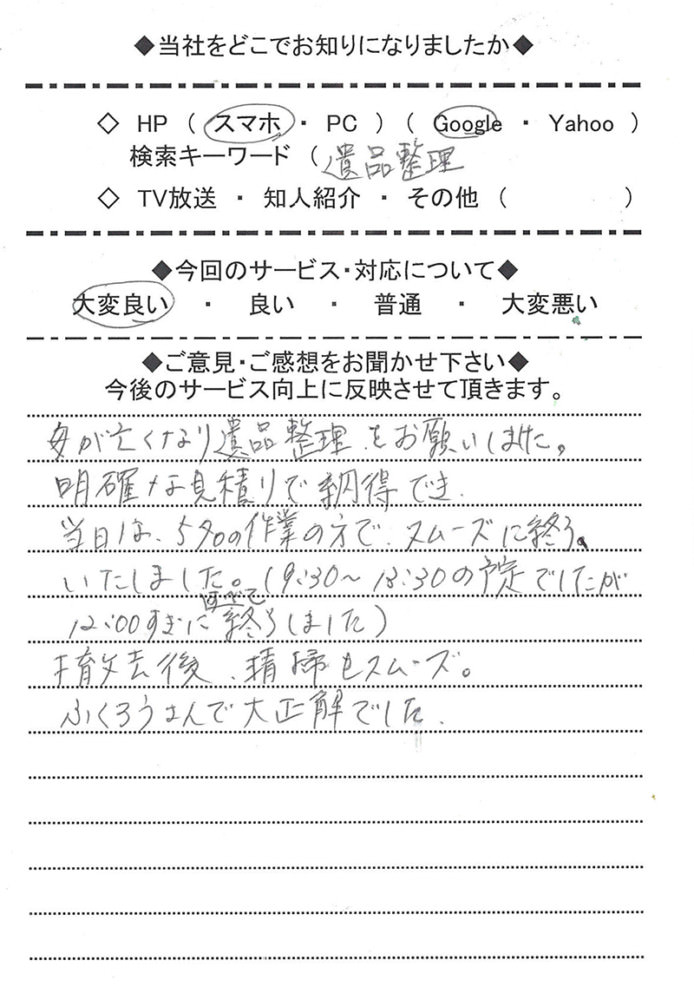 ◆当社をどこでお知りになりましたか◆
◇ HP ( スマホ ・ PC ) ( Google ・ Yahoo )
検索キーワード ( 遺品整理
◇ TV放送 ・ 知人紹介 ・ その他 ( )
◆今回のサービス・対応について◆
大変良い ・ 良い ・ 普通 ・ 大変悪い
◆ご意見・ご感想をお聞かせ下さい◆
今後のサービス向上に反映させて頂きます。
母が亡くなり遺品整理をお願いしました。
明確な見積りで納得でき、
当日は、5名の作業の方で、スムーズに終了。
いたしました。(9:30～13:30の予定でしたが
すべて
12:00すぎに終了しました)
撤去後、清掃もスムーズ。
ふくろうさんで大正解でした。